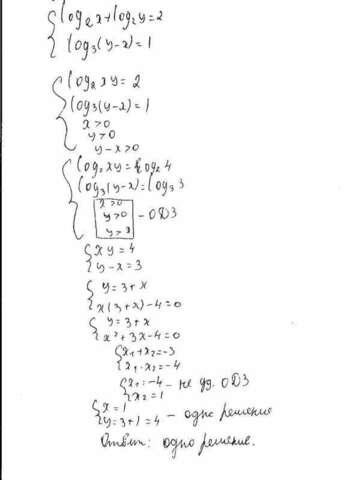 log₂x+log₂y=2
log₃(y-x)=1
log₂xy=2
log₃(y-x)=1
x>0
y>0
y-x>0
log₂xy=log₂4
log₃(y-x)=log₃3
x>0
y>0 - ОДЗ
y>x
xy=4
y-x=3
y=3+x
x(3+x)-4=0
y=3+x
x²+3x-4=0
x₁+x₂=-3
x₁·x₂=-4
x₁=-4 - не уд. ОДЗ
x₂=1
x=1
y=3+1=4 - одно решение
Ответ: одно решение.